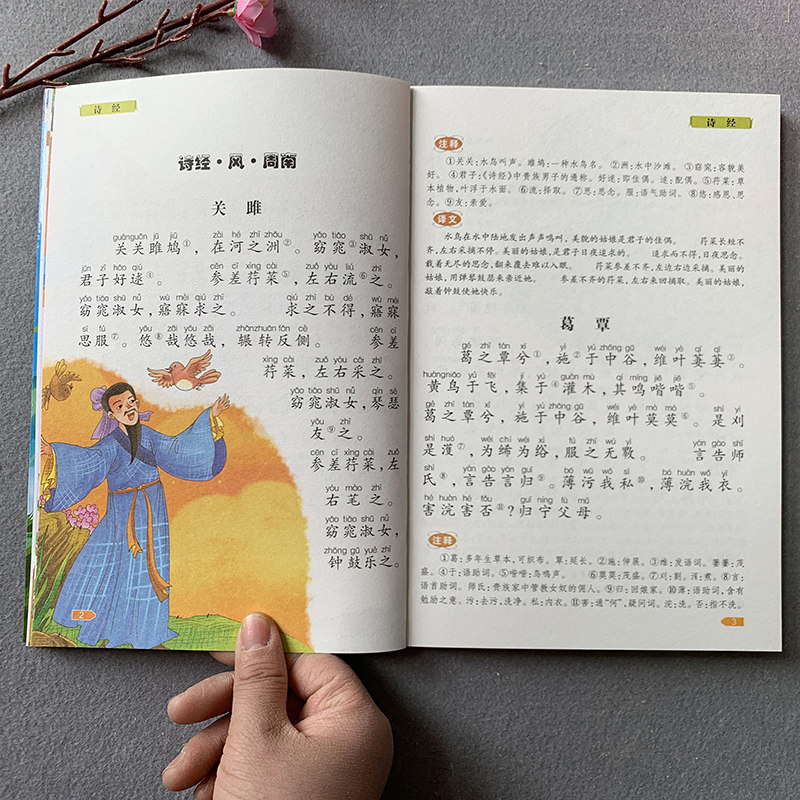 诗 经
诗经·风·周南
关 雎
guānguān jū jiū zài hé zhī zhōu yǎo tiǎo shū nǚ
关关雎鸠①，在河之洲②。窈窕③淑女，
jūn zǐ hǎo qiú cēn cī xìng cài zuǒ yòu liú zhī
君子好逑④。 参差荇菜⑤，左右流⑥之。
yǎo tiǎo shū nǚ wù mèi qiú zhī qiú zhī bù dé wù mèi
窈窕淑女，寤寐求之。 求之不得，寤寐
sī fú yōu zāi yōu zāi zhǎnzhuǎn fǎn cè cēn cī
思服⑦。悠⑧哉悠哉，辗转反侧。 参差
xìng cài zuǒ yòu cǎi zhī
荇菜，左右采之。
yǎo tiǎo shū nǚ qín sè
窈窕淑女，琴瑟
yǒu zhī
友⑨之。
cēn cī xìng cài zuǒ
参差荇菜，左
yòu mào zhī
右芼之。
yǎo tiǎo shū nǚ
窈窕淑女，
zhōng gǔ yuè zhī
钟鼓乐之。
2
诗 经
注释
①关关:水鸟叫声。雎鸠:一种水鸟名。②洲:水中沙滩。③窈窕:容貌美
好。④君子:《诗经》中贵族男子的通称。好逑:即佳偶。逑:配偶。⑤荇菜:草
本植物,叶浮于水面。⑥流:择取。⑦思:思念。服:语气助词。⑧悠:感恩、思
念。⑨友:亲爱。
译文
水鸟在水中陆地发出声声鸣叫,美貌的姑娘是君子的佳偶。 荇菜长短不
齐,左右采摘不停。美丽的姑娘,是君子日夜追求的。 追求而不得,日夜思念。
载着无尽的思念,翻来覆去难以入眠。 荇菜参差不齐,左边右边采摘。美丽的
姑娘,用弹琴鼓瑟来亲近她。 参差不齐的荇菜,左右来回摘取。美丽的姑娘,
敲着钟鼓使她快乐。
葛 覃
gé zhī tán xī yì yú zhōng gǔ wéi yè qī qī
葛之覃兮①，施②于中谷，维叶萋萋③。
huángniǎo yú fēi jí yú guàn mù qí míng jiē jiē
黄鸟于飞，集于④灌木，其鸣喈喈⑤。
gé zhī tán xī yì yú zhōng gǔ wéi yè mò mò shì yì
葛之覃兮，施于中谷，维叶莫莫⑥。是刈
shì huò wéi chī wéi xì fú zhī wú yì yán gào shī
是濩⑦，为绤为绤，服之无斁。 言告师
shì yán gào yán guī bó wū wǒ sī bó huàn wǒ yī
氏⑧，言告言归⑨。薄污我私⑩，薄浣我衣。
hé huàn hé fǒu guī níng fù mǔ
害浣害否⑪?归宁父母。
注释
①葛:多年生草本,可织布。覃:延长。②施:伸展。③维:发语词。萋萋:茂
盛。④于:语助词。⑤喈喈:鸟鸣声。 ⑥莫莫:茂盛。⑦刈:割。濩:煮。⑧言:
语首助词。师氏:贵族家中管教女奴的佣人。⑨归:回娘家。⑩薄:语助词,含有
勉励之意。污:去污,洗净。私:内衣。⑪害:通"何",疑问词。浣:洗。否:指不洗。
3